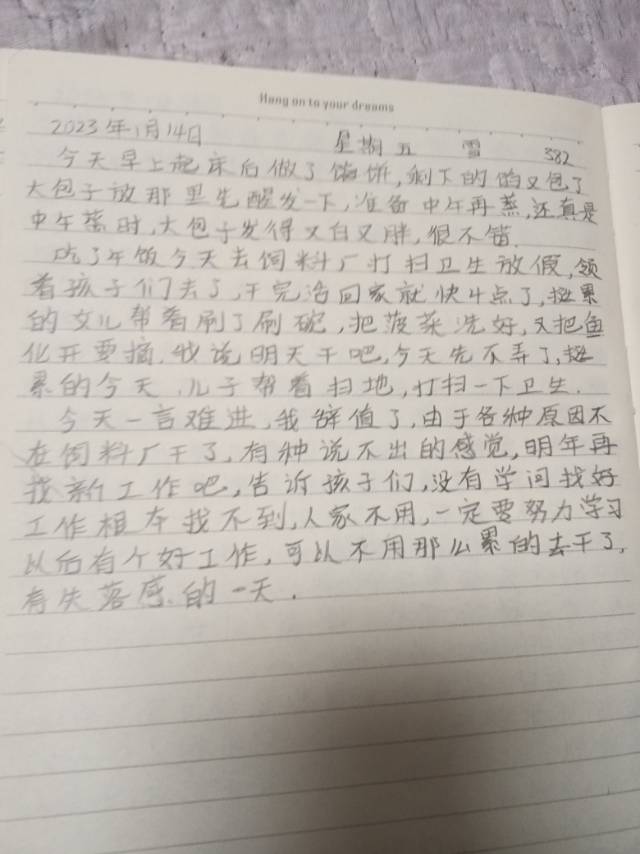 Hang on to your dreams
2023年1月14日 星期五 雪 382
今天早上起床后做了馅饼,剩下的馅又包了
大包子放那里先醒发一下,准备中午再蒸,还真是
中午蒸时,大包子发得又白又胖,很不错.
吃了午饭今天去饲料厂打扫卫生放假,领
着孩子们去了,干完活回家就快4点了,挺累
的女儿帮着刷了刷碗,把菠菜洗好,又把鱼
化开要摘.我说明天干吧,今天先不弄了,挺
累的今天.儿子帮着扫地,打扫一下卫生.
今天一言难进,我辞值了,由于各种原因不
在饲料厂干了,有种说不出的感觉,明年再
找新工作吧,告诉孩子们,没有学问找好
工作根本找不到,人家不用,一定要努力学习
以后有个好工作,可以不用那么累的去干了,
有失落感.的一天.